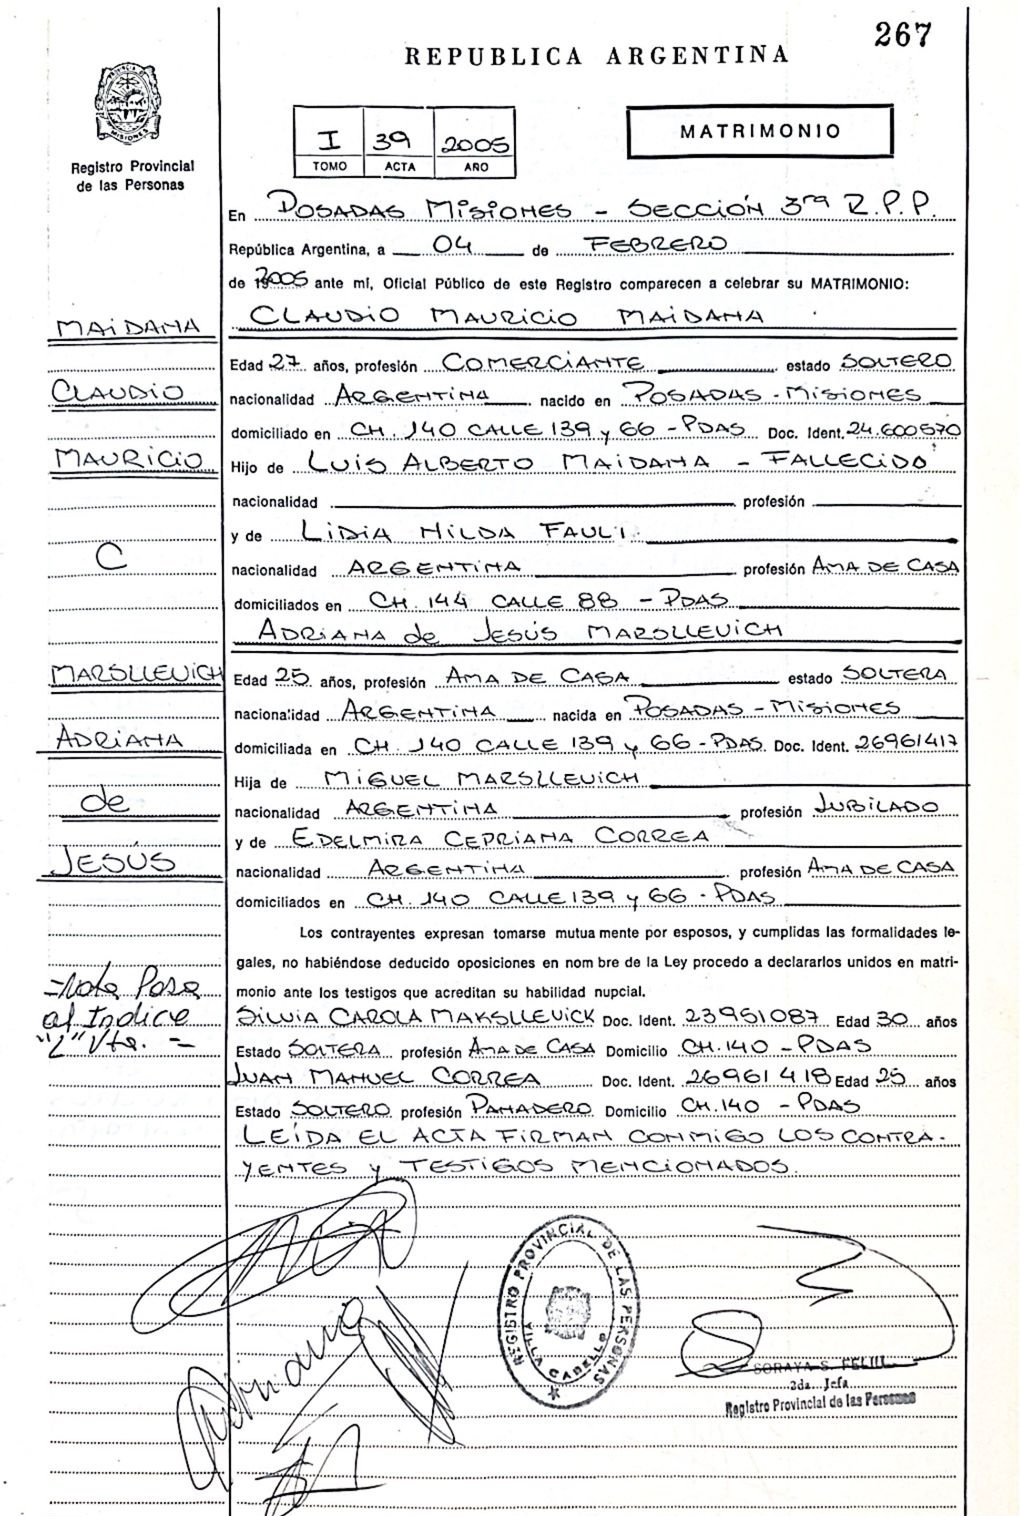 267
REPUBLICA ARGENTINA
PROVINCIA DE MISIONES
Registro Provincial
de las Personas
I 39 2005
TOMO ACTA AÑO
MATRIMONIO
En POSADAS MISIONES - SECCIÓN 3ra R.P.P.
República Argentina, a 04 de FEBRERO
de 2005 ante mí, Oficial Público de este Registro comparecen a celebrar su MATRIMONIO:
MAIDANA
CLAUDIO MAURICIO MAIDANA
Edad 27 años, profesión COMERCIANTE estado SOLTERO
CLAUDIO
nacionalidad ARGENTINA nacido en POSADAS - MISIONES
domiciliado en CH. 140 CALLE 139 y 66 - PDAS Doc. Ident. 24.600570
MAURICIO
Hijo de LUIS ALBERTO MAIDANA - FALLECIDO
nacionalidad profesión
y de LIDIA HILDA FAULI
C
nacionalidad ARGENTINA profesión AMA DE CASA
domiciliados en CH. 144 CALLE 88 - PDAS
ADRIANA de JESÚS MARSLLEVICH
MARSLLEVICH
Edad 25 años, profesión AMA DE CASA estado SOLTERA
nacionalidad ARGENTINA nacida en POSADAS - MISIONES
ADRIANA
domiciliada en CH. 140 CALLE 139 y 66 - PDAS. Doc. Ident. 26961417
Hija de MIGUEL MARSLLEVICH
de
nacionalidad ARGENTINA profesión JUBILADO
y de EDELMIRA CEPRIANA CORREA
JESÚS
nacionalidad ARGENTINA profesión AMA DE CASA
domiciliados en CH. 140 CALLE 139 y 66 - PDAS
Los contrayentes expresan tomarse mutua mente por esposos, y cumplidas las formalidades le-
gales, no habiéndose deducido oposiciones en nom bre de la Ley procedo a declararlos unidos en matri-
monio ante los testigos que acreditan su habilidad nupcial.
=Nota Pasa
al Indice
"L" Vta. =
SILVIA CAROLA MARSLLEVICK Doc. Ident. 23951087 Edad 30 años
Estado SOLTERA profesión AMA DE CASA Domicilio CH. 140 - PDAS
JUAN MANUEL CORREA Doc. Ident. 26961418 Edad 25 años
Estado SOLTERO profesión PANADERO Domicilio CH. 140 - PDAS
LEÍDA EL ACTA FIRMAN CONMIGO LOS CONTRA-
YENTES y TESTIGOS MENCIONADOS.
REGISTRO PROVINCIAL DE LAS PERSONAS
VILLA CABELLO
Adriana
SORAYA S. FELIU
2da. Jefa
Registro Provincial de las Personas